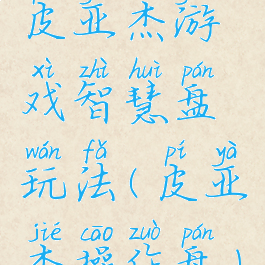 皮亚杰游
xì zhì huì pán
戏智慧盘
wán fǎ pí yà
玩法(皮亚
jié cāo zuò pán
杰操作盘)